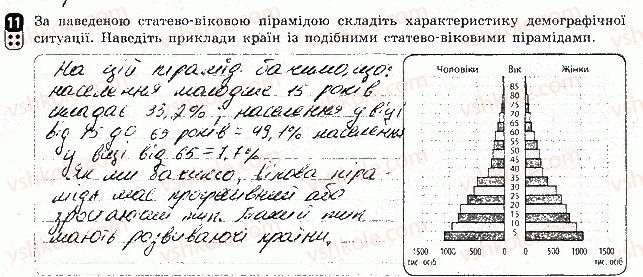 11 За наведеною статево-віковою пірамідою складіть характеристику демографічної
ситуації. Наведіть приклади країн із подібними статево-віковими пірамідами.
На цій пірамід. бачимо, що:
населення молодше 15 років
складає 33,2%; населення у віці
від 15 до 65 років = 49,1% населення
у віці від 65 = 7,7%
Як ми бачимо, вікова піра-
міда має прогресивний або
зростаючий тип. Такий тип
мають розвиваючі країни.
Чоловіки Вік Жінки
85
80
75
70
65
60
55
50
45
40
35
30
25
20
15
10
5
1500 1000 500 0 0 500 1000 1500
тис. осіб тис. осіб
vshkole.com